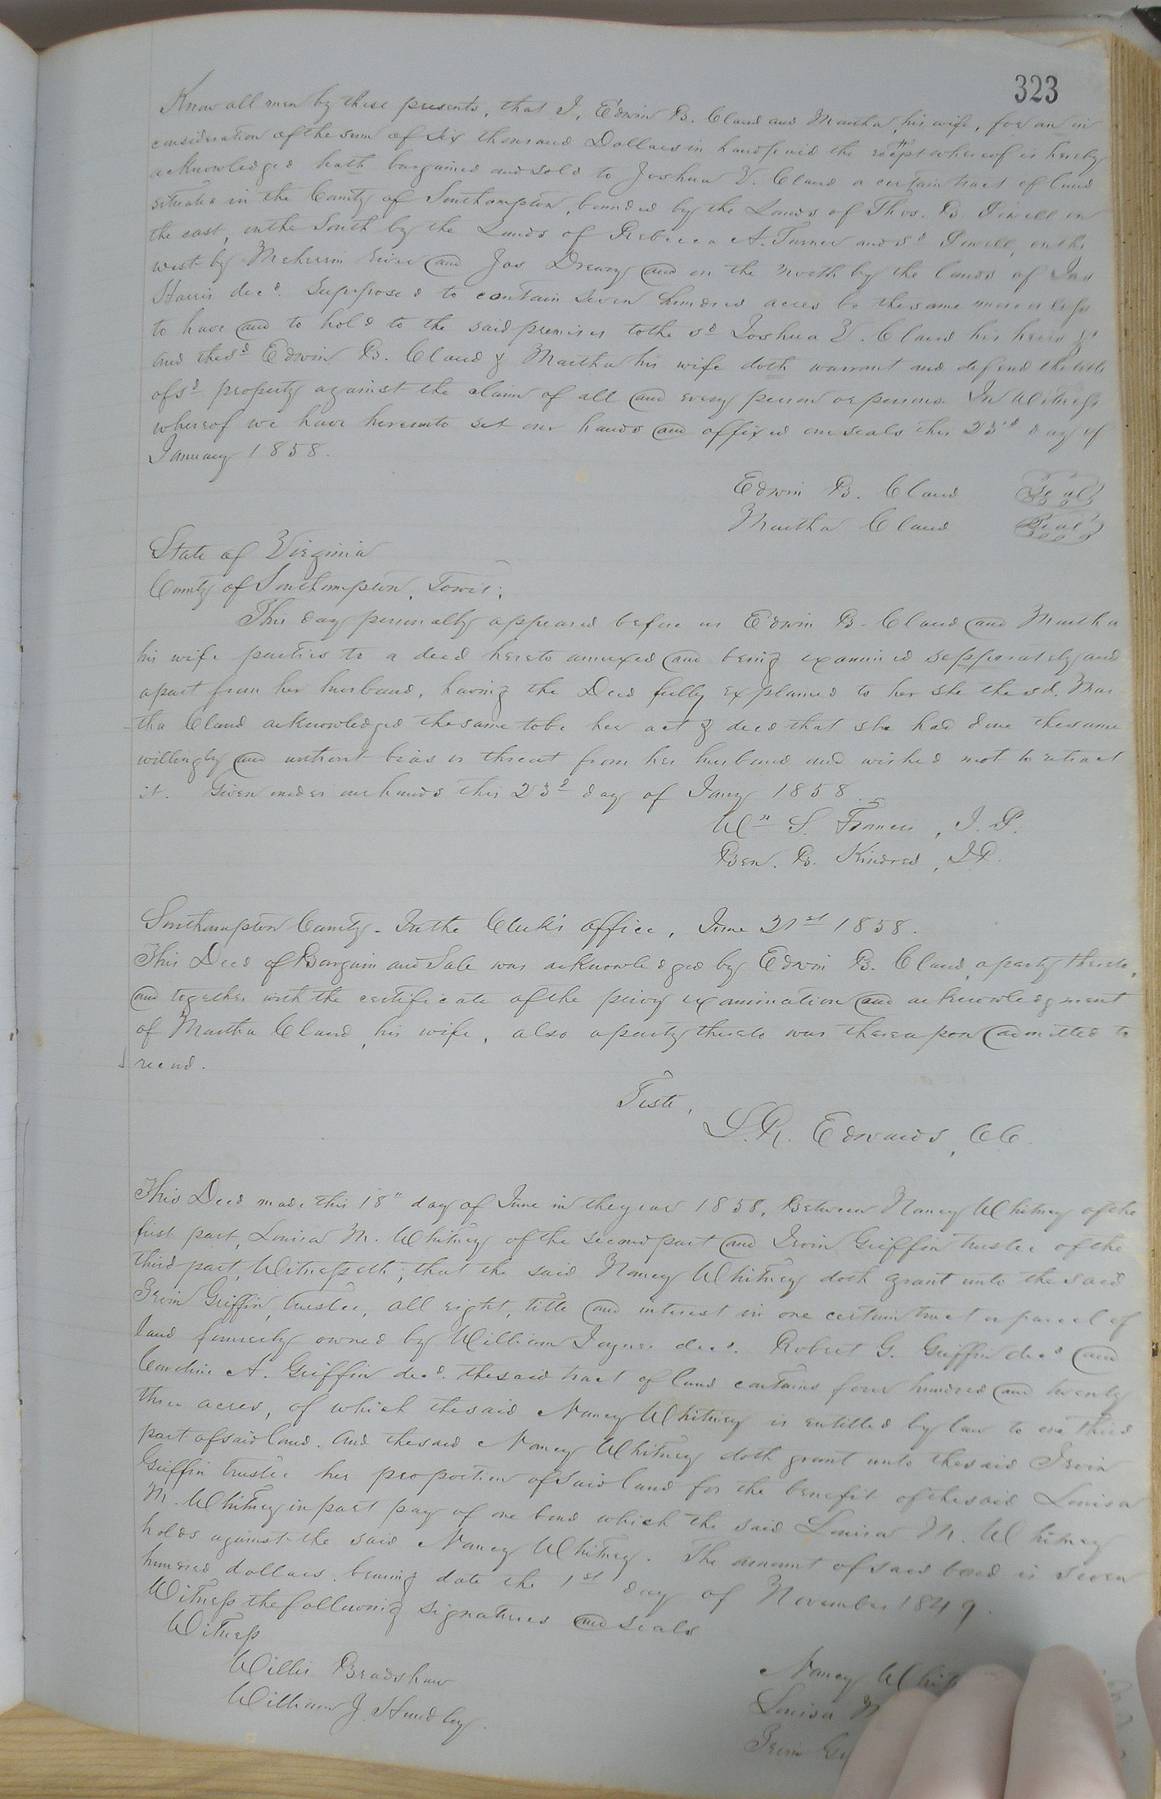 323
Know all men by these presents, that I, Edwin B. Claud and Martha, his wife, for an in
consideration of the sum of Six thousand Dollars in hand paid the receipt whereof is hereby
acknowledged hath bargained and sold to Joshua Z. Claud a certain tract of land
situated in the County of Southampton, bounded by the Lands of Thos. B. Powell on
the east, on the South by the Lands of Rebecca A. Turner and sd Powell, on the
west by Meherrin River and Jas Drewry and on the North by the lands of Jas
Harris decd. Supposed to contain seven hundred acres be the same more or less
to have and to hold to the said premises to the sd Joshua Z. Claud his heirs &c
and the sd Edwin B. Claud & Martha his wife doth warrant and defend the title
of sd property against the claim of all and every person or persons. In Witness
whereof we have hereunto set our hands and affixed our seals this 23d day of
January 1858.
Edwin B. Claud Seal
Martha Claud Seal
State of Virginia
County of Southampton, Towit;
This day personally appeared before us Edwin B. Claud and Martha
his wife parties to a deed hereto annexed and being examined sepperately and
apart from her husband, having the Deed fully explained to her she the sd. Mar
tha Claud acknowledged the same to be her act & deed that she had done the same
willingly and without bias or threat from her husband and wished not to retract
it. Given under our hands this 23d day of Jany 1858.
Wm S. Francis, J. P.
Ben. B. Kindred, J P.
Southampton County. In the Clerk's Office, June 21st 1858.
This Deed of Bargain and Sale was acknowledged by Edwin B. Claud, a party thereto,
and together with the certificate of the privy examination and acknowledgment
of Martha Claud, his wife, also a party thereto was thereupon admitted to
record.
Teste,
L. R. Edwards, C C.
This Deed made this 18" day of June in the year 1858, Between Nancy Whitney of the
first part, Louisa M. Whitney of the second part and Irvin Griffin trustee of the
third part, Witnesseth; that the said Nancy Whitney doth grant unto the said
Irvin Griffin, trustee, all right, title and interest in one certain tract or parcel of
land formerly owned by William Joyner decd. Robert G. Griffin decd and
Caroline A. Griffin decd. the said tract of land contains four hundred and twenty
three acres, of which the said Nancy Whitney is entitled by law to one third
part of said land. And the said Nancy Whitney doth grant unto the said Irvin
Griffin trustee her proportion of said land for the benefit of the said Louisa
M. Whitney in part pay of one bond which the said Louisa M. Whitney
holds against the said Nancy Whitney. The amount of said bond is seven
hundred dollars. bearing date the 1st day of November 1849.
Witness the following signatures and seals
Witness
Willis Bradshaw
William J. Hundley.
Nancy Whit
Louisa M
Irvin G